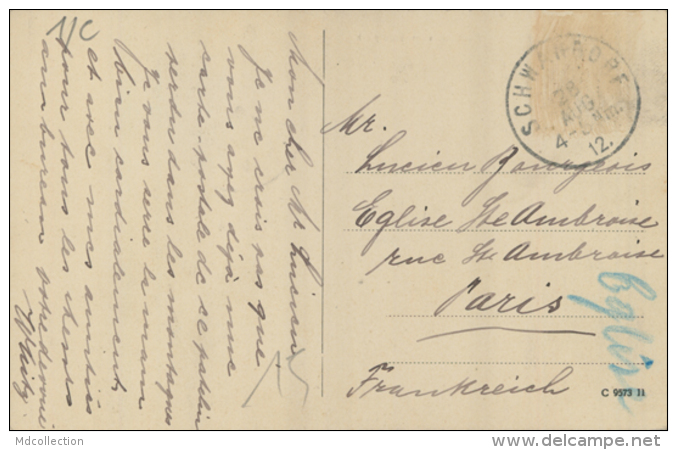 1/C
Mon cher Mr Lucien
Je ne crois pas que
vous ayez déjà une
carte postale de ce patelin
perdu dans les montagnes
Je vous serre la main
bien cordialement,
et avec mes amitiés
pour tous les chers
au bureau
SCHWANDORF
28
AUG
4-5 Nm.
12.
Mr.
Lucien Bourgeois
Eglise Ste Ambroise
rue St Ambroise
Paris
Frankreich
Eglise
C 9573 11
Mdcollection
www.delcampe.net